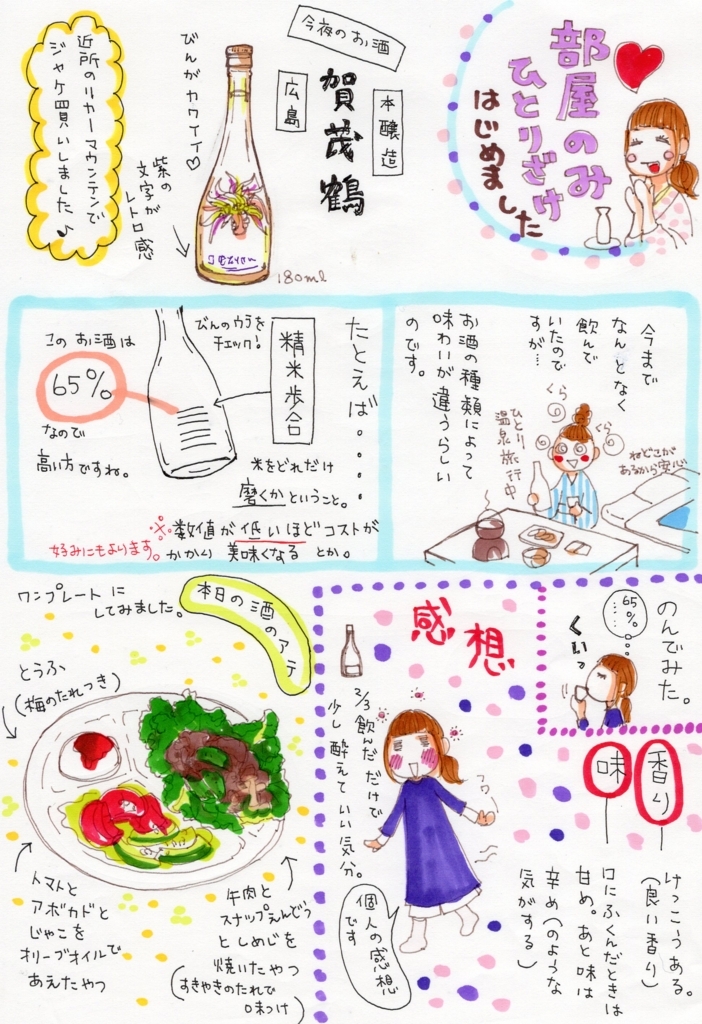 部屋のみ
ひとりざけ
はじめました
今夜のお酒
本醸造
賀茂鶴
広島
びんがカワイイ♡
紫の
文字が
レトロ感
180ml
近所のリカーマウンテンで
ジャケ買いしました♪
今まで
なんとなく
飲んで
いたので
すが…
お酒の種類によって
味わいが違うらしい
のです。
くら
くら
ひとり
温泉旅行中
ねどこが
あるから安心
たとえば・・・・・
精米歩合
びんのウラを
チェック!
このお酒は
65%
なので
高い方ですね。
米をどれだけ
磨くかということ。
※数値が低いほどコストが
かかり美味くなるとか。
好みにもよります。
本日の酒のアテ
ワンプレートに
してみました。
とうふ
(梅のたれつき)
トマトと
アボカドと
じゃこを
オリーブオイルで
あえたやつ
牛肉と
スナップえんどう
としめじを
焼いたやつ
(すきやきのたれで
味つけ)
のんでみた。
65%
……
くいっ
感想
香り
けっこうある。
(良い香り)
味
口にふくんだときは
甘め。あと味は
辛め(のような
気がする)
2/3飲んだだけで
少し酔えていい気分。
フワー
個人の感想
です